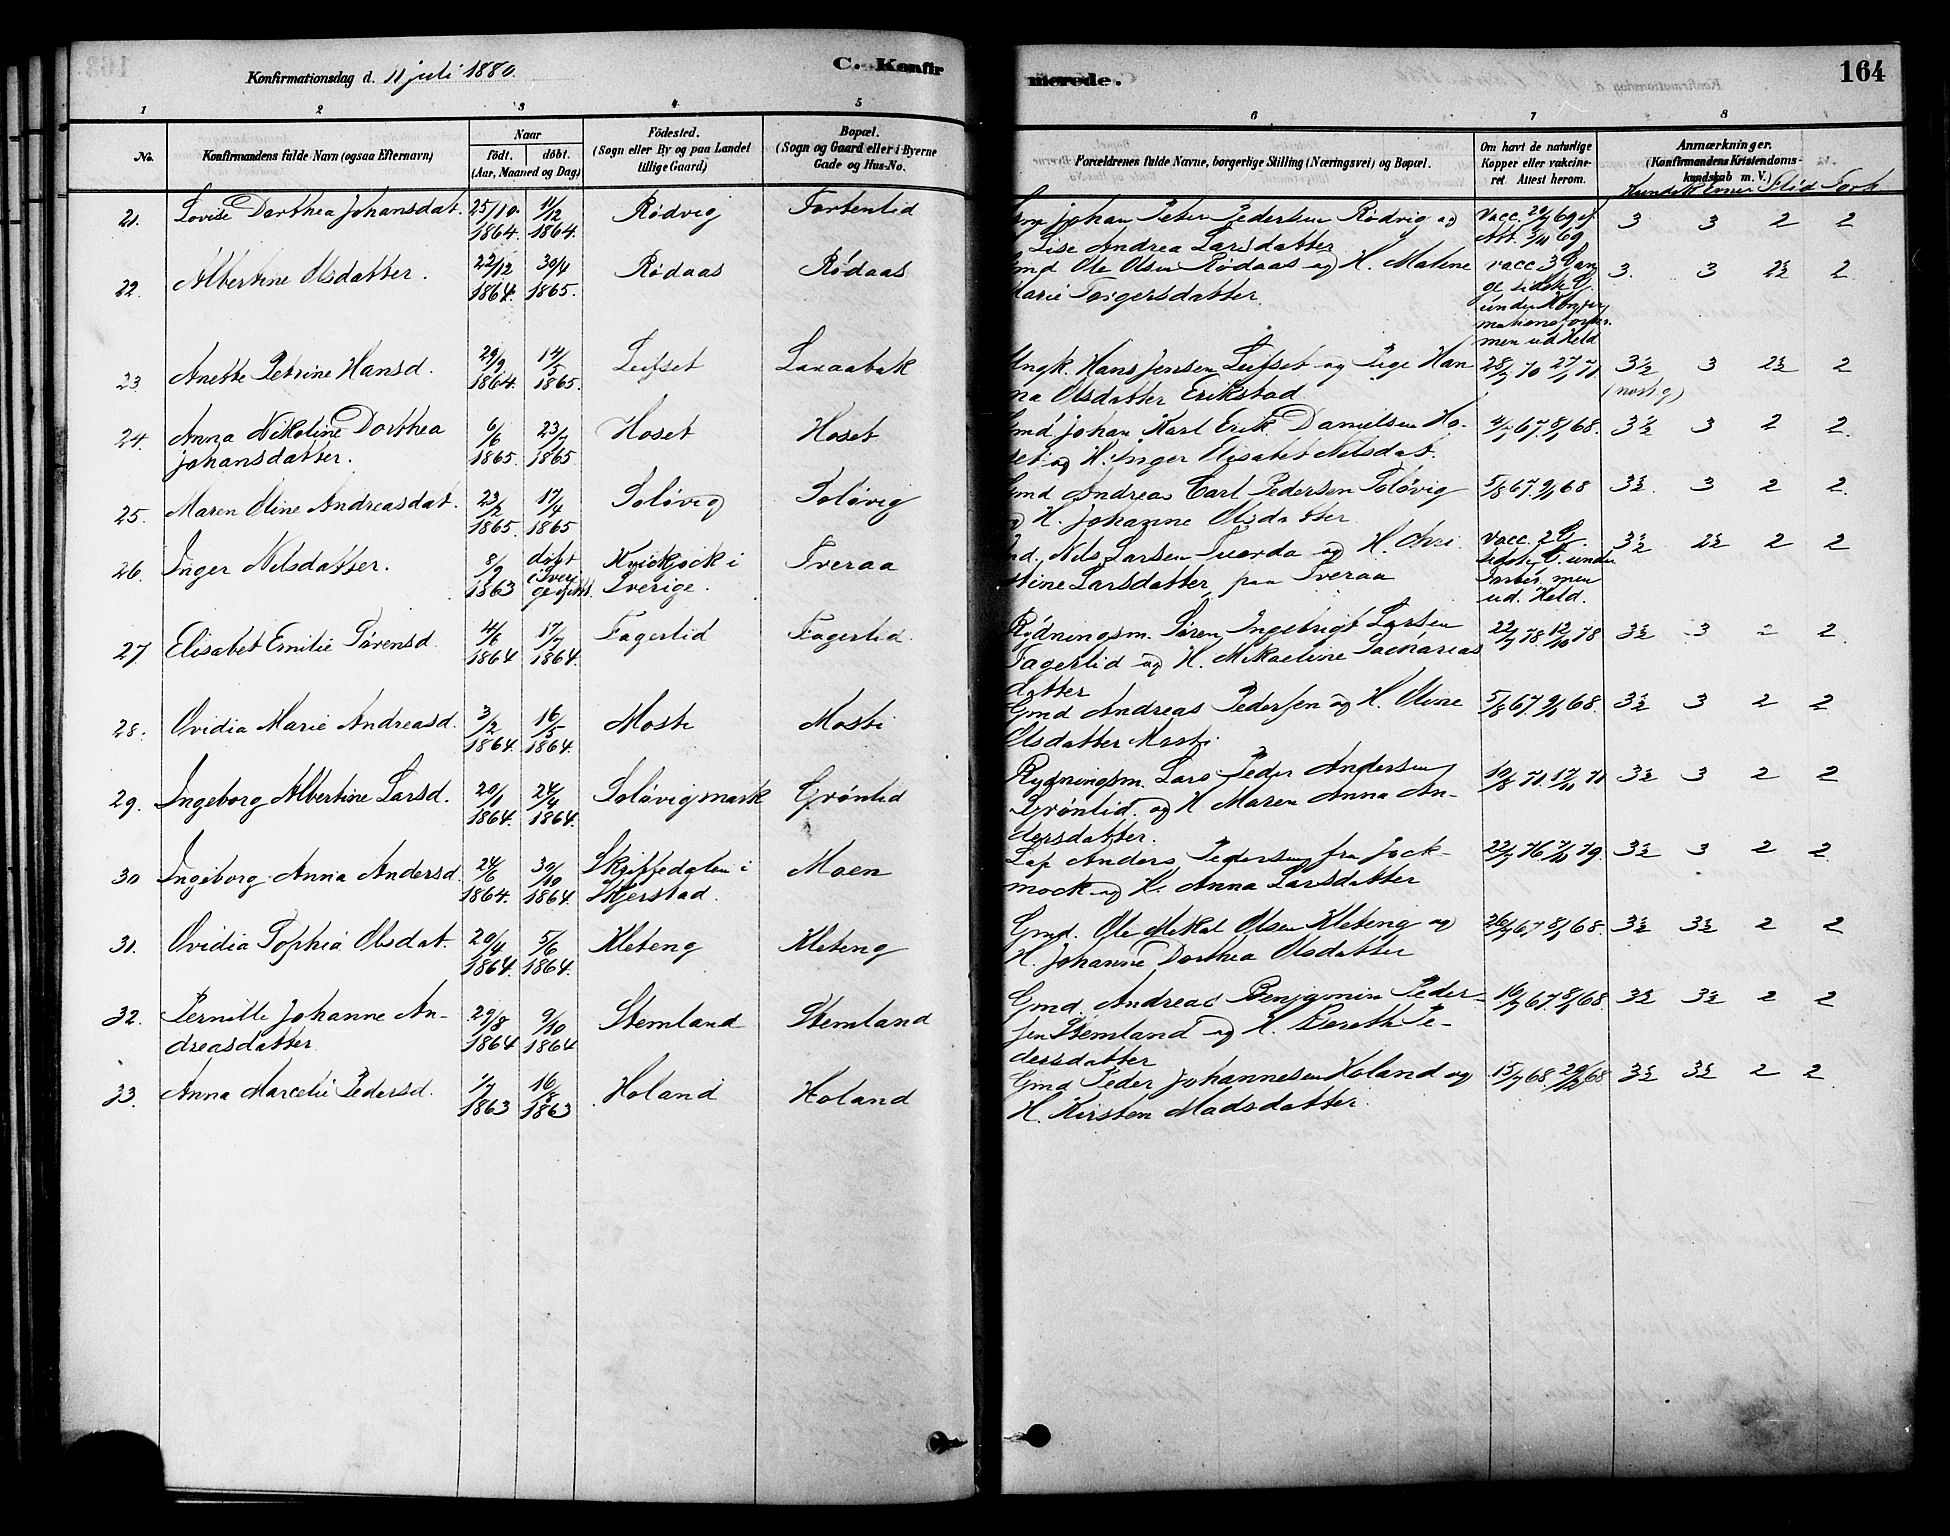 Konfirmationsdag d. 11 juli 1880.
C. Konfir
merede.
164
1 2 3 4 5 6 7 8
No.
Konfirmandens fulde Navn (ogsaa Efternavn)
Naar
födt. döbt.
(Aar, Maaned og Dag)
Födested.
(Sogn eller By og paa Landet
tillige Gaard)
Bopæl.
(Sogn og Gaard eller i Byerne
Gade og Hus-No.
Forældrenes fulde Navne, borgerlige Stilling (Næringsvei) og Bopæl.
Om havt de naturlige
Kopper eller vakcine-
ret. Attest herom.
Anmærkninger.
(Konfirmandens Kristendoms-
kundskab m. V.)
Kundsk Evner Flid
21. Lovise Dorthea Johansdat. 25/10 1864. 11/12 1864. Rødvig Fortenlid
Johan Peter Pedersen Rødvig og
Lise Andrea Larsdatter
3 3 2 2
22. Albertine Olsdatter. 22/12 1864. 30/4 1865. Rødaas Rødaas
Ole Olsen Rødaas og H. Malene
Marie Torgersdatter
vacc 3 Gan
ge sidste G.
under Konfir
mationsforber.
men ud held
3. 3 2½ 2
23 Anette Petrine Hansd. 29/9 1864. 14/5 1865. Leifset Laraabak
Ungk. Hans Jensen Leifset og Pige Han
na Olsdatter Erikstad
28/7 70 27/1 71
3½ 3 2½ 2
24. Anna Nikoline Dorthea
Johansdatter. 6/6 1865. 23/7 1865 Hoset Hoset
Gmd Johan Karl Erik Danielsen Ho-
set og H. Inger Elisabet Nilsdat.
3½ 3 2 2.
25. Maren Oline Andreasdat. 23/2 1865. 17/4 1865 Soløvig Soløvig
Gmd Andreas Carl Pedersen Soløvig
og H. Johanne Olsdatter
5/8 67. 9/1 68
3½. 3 2 2.
26. Inger Nilsdatter. 8/9 1863 døbt i Sver Kvickjock i
Sverige. Tveraa
Nils Larsen Tuorda og H. Chri
stine Larsdatter, paa Tveraa
vacc. 2 G.
sidste G. under
Forber. men
ud. Held.
3½ 2½ 2 2
27 Elisabet Emilie Sørensd 4/6 1864 17/7 1864. Fagerlid Fagerlid.
Rydningsm. Søren Ingebrigt Larsen
Fagerlid og H. Mikaeline Sacharias
datter
22/7 78. 12/10 78
3½ 3 2 2.
28. Ovidia Marie Andreasd. 3/2 1864. 16/5 1864. Mosti Mosti
Gmd Andreas Pedersen og H. Oline
Olsdatter Mosti
5/8 67. 9/1 68.
3½ 3 2 2
29. Ingeborg Albertine Larsd. 20/1 1864. 24/4 1864. Soløvigmark Grønlid
Rydningsm. Lars Peder Andersen
Grønlid og H Maren Anna An-
dersdatter.
3½ 3 2 2
30 Ingeborg Anna Andersd. 24/6 1864. 30/10 1864. Skjiffedalen i
Skjerstad. Moen
Lap Anders Pedersen fra Jock-
mock og H. Anna Larsdatter
3½ 3 2 2.
31. Ovidia Sophia Olsdat. 20/4 1864. 5/6 1864. Kleteng Kleteng
Gmd. Ole Mikal Olsen Kleteng og
H. Johanne Dorthea Olsdatter
3½ 3½ 2 2
32. Pernille Johanne An-
dreasdatter. 29/8 1864 9/10 1864 Stemland Stemland
Gmd. Andreas Benjamin Peder-
sen Stemland og H. Bereth Pe-
dersdatter
3½ 3½ 2 2
33. Anna Marcelie Pedersd. 1/7 1863 16/8 1863 Holand Holand
Gmd Peder Johannesen Holand og
H. Kirsten Madsdatter.
3½ 3½ 2 2